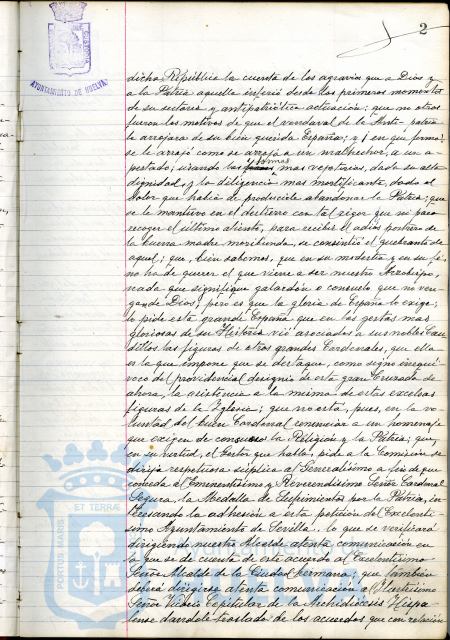 2
AYUNTAMIENTO DE HUELVA
dicha República la cuenta de los agravios que a Dios y
a la Patria aquella infirió desde los primeros momentos
de su sectarea y antipatriótica actuación; que no otros
fueron los motivos de que el vendaval de la Anti-patria
le arrojara de su bien querida España; y en que forma!
se le arrojó como se arroja a un malhechor, a un
apestado, usando las formas mas vejatorias, dada su alta
dignidad, y la diligencia mas mortificante, dado el
dolor que habia de producirle abandonar la Patria; que
se le mantuvo en el destierro con tal rigor que ni para
recoger el último aliento, para recibir el adios postrero de
la buena madre moribunda, se consintió el quebranto de
aquel; que, bien sabemos, que en su modestia y en su fé,
no ha de querer el que viene a ser nuestro Arzobispo,
nada que signifique galardón o consuelo que no ven
ga de Dios; pero es que la gloria de España lo exige;
lo pide esta grande España que en las gestas mas
gloriosas de su Historia vió asociados a sus nobles Cau
dillos las figuras de otros grandes Cardenales, que ella
es la que impone que se destaque, como signo inequí-
voco del providencial designio de esta gran Cruzada de
ahora, la asistencia a la misma de estas excelsas
figuras de la Iglesia; que no está, pues, en la vo-
luntad del buen Cardenal renunciar a un homenaje
que exigen de consuno la Religión y la Patria; que,
en su virtud, el Gestor que habla, pide a la Comisión se
dirija respetuosa súplica al Generalísimo a fin de que
conceda al Eminentísimo y Reverendísimo Señor Cardenal
Segura, la Medalla de Sufrimientos por la Patria, in-
teresando la adhesión a esta petición del Excelentí-
simo Ayuntamiento de Sevilla, lo que se verificará
dirigiendo nuestro Alcalde atenta comunicación en
la que se de cuenta de este acuerdo al Excelentísimo
Señor Alcalde de la Ciudad hermana; que tambien
deberá dirigirse atenta comunicación al Ilustrísimo
Señor Vicario Capitular de la Archidiócesis Hispa-
lense dandole traslado de los acuerdos que con relación
PORTUS MARIS ET TERRAE
Ayuntamiento de